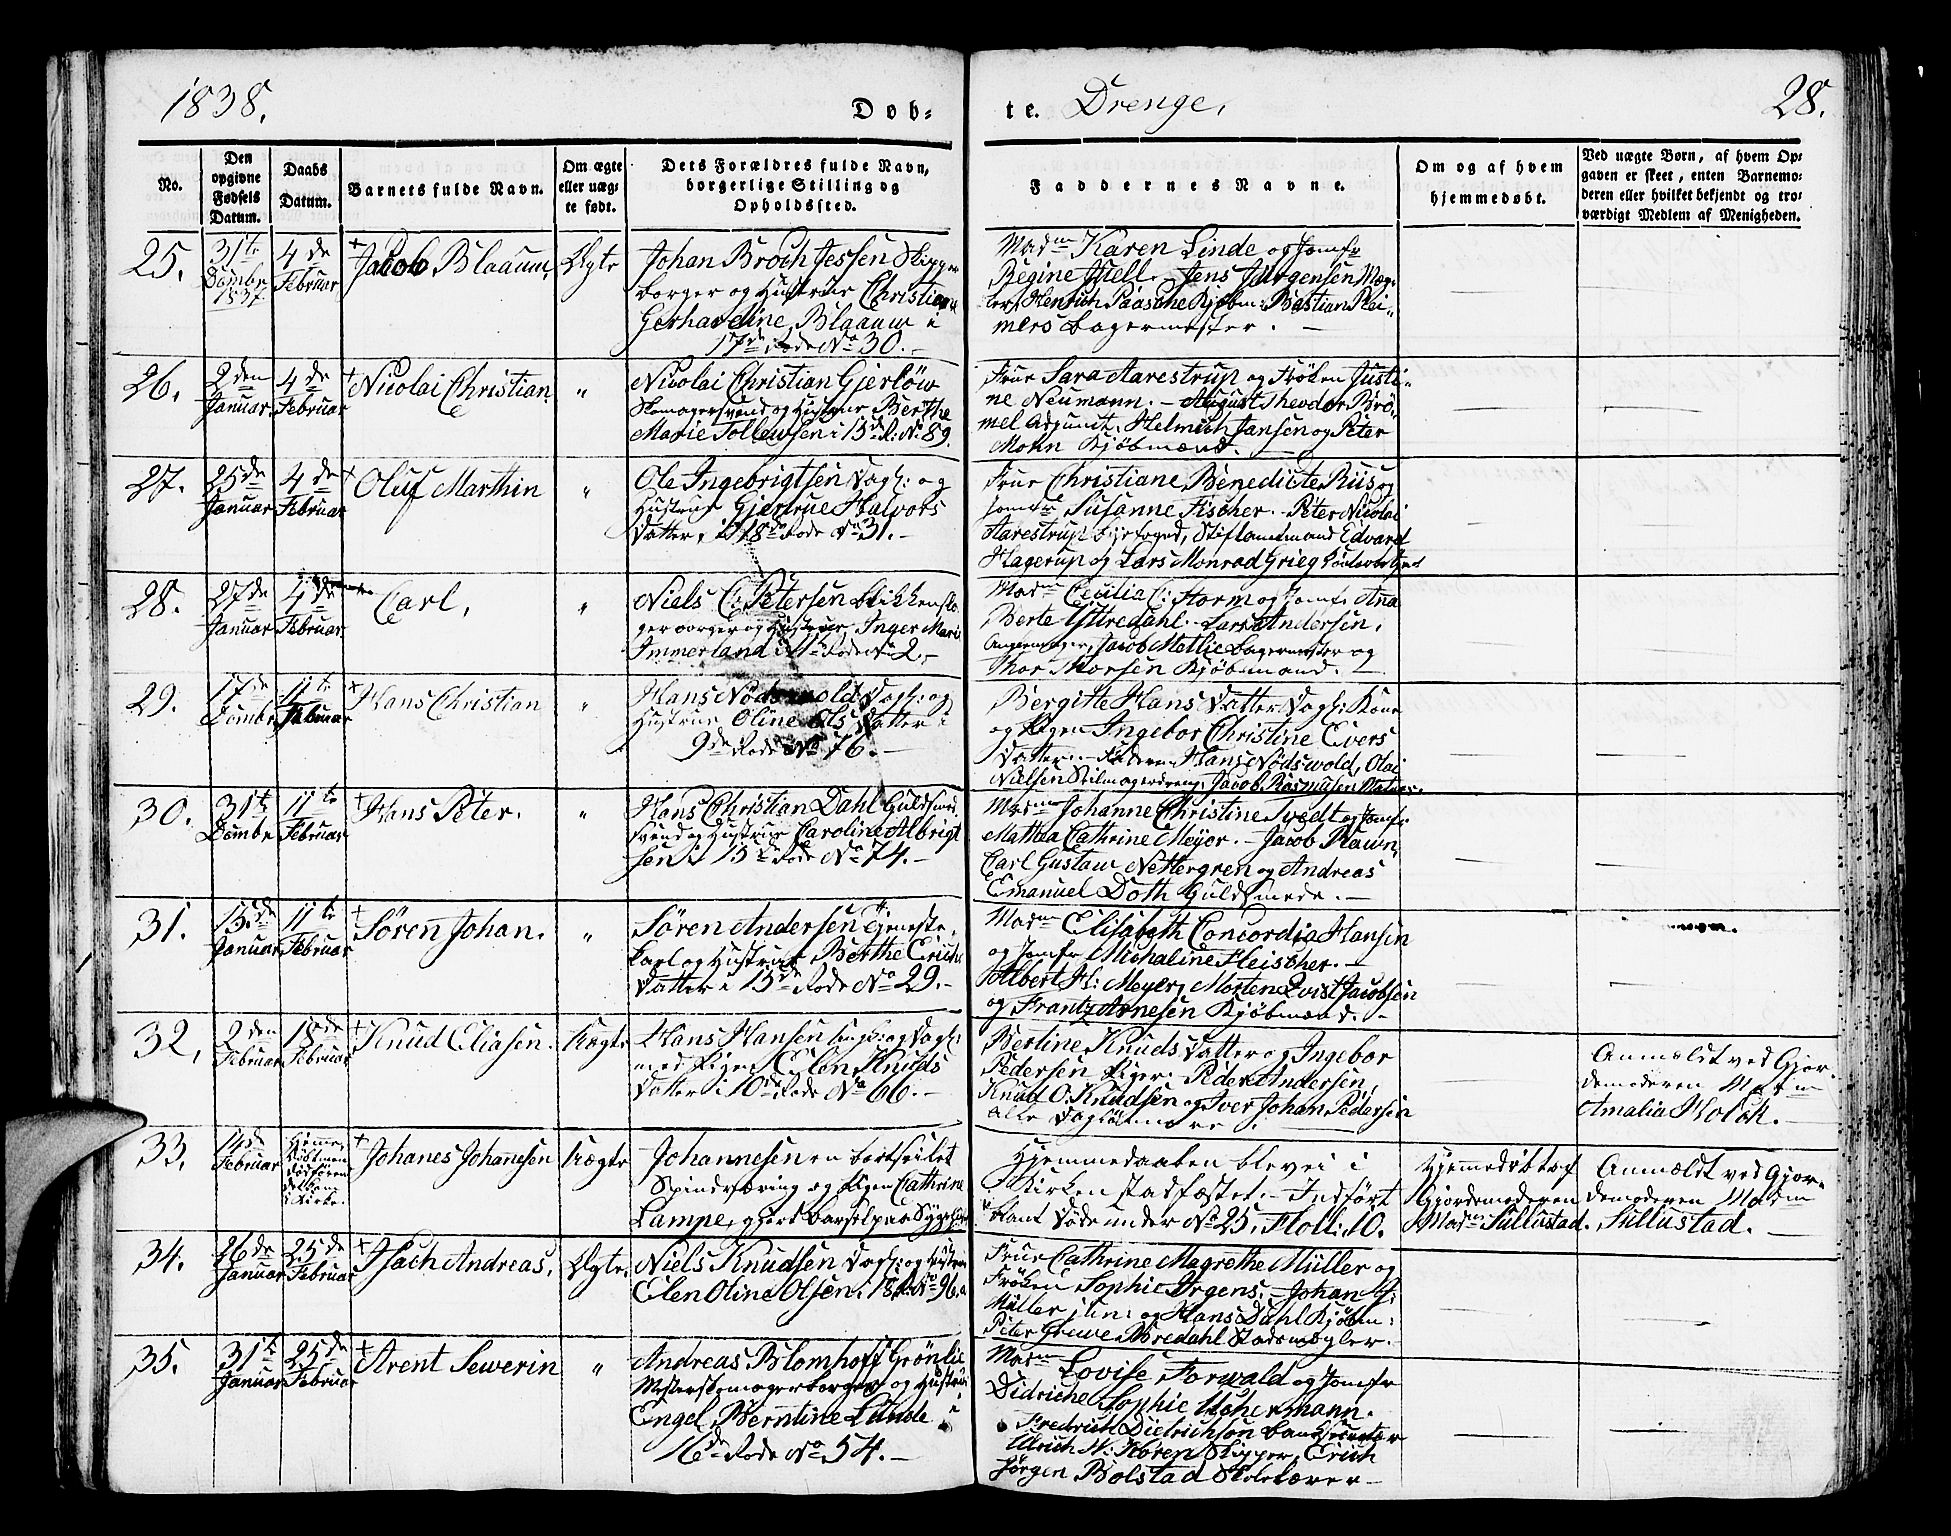 1838.
Døb-
te. Drenge.
28.
No.
Den opgivne Fødsels Datum.
Daabs Datum.
Barnets fulde Navn.
Om ægte eller uæg-te født.
Dets Forældres fulde Navn, borgerlige Stilling og Opholdssted.
Faddernes Navne.
Om og af hvem hjemmedøbt.
Ved uægte Børn, af hvem Op-
gaven er skeet, enten Barnemo-
deren eller hvilket bekjendt og tro-
værdigt Medlem af Menigheden.
25.
31te Dcmbr 1837
4de Februar
Jacob Blaauw,
Ægte
Johan Broch Jessen Skipper
borger og Hustrue Christiane
Gerhardine Blaauw i
17de Rode No 30. —
Madme Karen Linde og Jomfr
Regine Juell. Jens Jürgensen Mæg-
ler, Henrich Paasche Kjøbm: Bastian Rei-
mers bagermester. —
26.
2den Januar
4de Februar
Nicolai Christian
"
Nicolai Christian Gjerløw
Skomagersvend og Hustrue Berthe
Marie Tollewsen i 13de R: No 89.
Frue Sara Aarestrup og Frøken Justi-
ne Neumann. — August Theodor Brö-
mel Adjunct, Helmich Jansen og Peter
Mohn Kjøbmænd. —
27.
25de Januar
4de Februar
Oluf Marthin
"
Ole Ingebrigtsen Dagl: og
Hustrue Gjertrue Halvors
Datter, i 18de Rode No 31. —
Frue Christiane Benedicte Riis og
Jomfr Susanne Fischer. Peter Nicolai
Aarestrup Byefoged, Stiftamtmand Edvard
Hagerup og Lars Monrad Grieg
28.
27de Januar
4de Februar
Carl,
"
Niels C: Petersen Blikkensla-
ger borger og Hustrue Inger Marie
Immerland i 11te Rode No 2. —
Madme Cecilia C: Storm og Jomfr Ana
Berte Ystredahl. Lars Andersen,
Jacob Mellie bagermester og
Thor Morsen Kjøbmand. —
29.
17de Dcmbr
11te Februar
Hans Christian
"
Hans Nødswold Dagl: og
Hustrue Oline Ols Datter i
9de Rode No 76. —
Bergitte Hans Datter Dagl: Kone
og Pigen Ingebor Christine Evers
Datter. — Faderen Hans Nødswold, Olai
Nielsen Jacob Rasmussen Matros.
30.
31te Dcmbr
11te Februar
Hans Peter.
"
Hans Christian Dahl Guldsmed
svend og Hustrue Caroline Albrigt
sen i 15de Rode No 74. —
Madme Johanne Christine Tvedt og Jomfr
Mattea Cathrine Meyer. — Jacob Rawn,
Carl Gustaw Nettergren og Andreas
Emanuel Doth Guldsmede. —
31.
15de Januar
11te Februar
Søren Johan.
"
Søren Andersen Tjeneste-
karl og Hustrue Berthe Erichs
Datter i 13de Rode No 29. —
Madme Elisabeth Concordia Hansen
og Jomfr Michaline Fleischer. —
Albert H: Meyer, Morten Qvist Jacobsen
og Frantz Arnesen Kjøbmænd. —
32.
2den Februar
18de Februar
Knud Eliasen.
Uægte
Hans Hansen ungk: og Dagl:
med Pigen Eilen Knuds
Datter i 10de Rode No 66. —
Bertine Knuds Datter og Ingebor
Pedersen Piger. Peder Andersen,
Knud O: Knudsen og Iver Johan Pedersen
alle Dagleiere.
Anmeldt ved Gjor-
demoderen Madme
Amalia Holck. —
33.
14de Februar
Hjemme-
døbt men
død føren
det kom
i Kirke.
Johanes Johanesen
Uægte
Johannesen en bortseilet
og Pigen Cathrine
Lampe, gjort barsel paa Sygehuus
Hjemmedaaben blev ei i
Kirken stadfæstet. — Indført
blant Døde under No 25. Foll: 10.
Hjemmedøbt af
Gjordemoderen
Madme Sullustad.
Anmeldt ved Gjor-
demoderen Madme
Sullustad. —
34.
26de Januar
25de Februar
Isach Andreas,
Ægte.
Niels Knudsen Dagl: og Hustrue
Eilen Oline Olsen i 18de R: No 96.
Frue Cathrine Magrethe Müller og
Frøken Sophie Irgens. — Johan G:
Müller jun: og Hans Dahl Kjøbm:
Peter Grewe Bredahl Stadsmægler.
35.
31te Januar
25de Februar
Arent Sewerin
"
Andreas Blomhoff Grønlie
Mesterskomager borger og Hustrue
Engel Berntine Lunde i
16de Rode No 54. —
Madme Lovise Forwald og Jomfr
Didriche Sophie Uchermann.
Fredrich Dietrichson
Ulrich W: Koren Skipper, Erich
Jørgen Bolstad Skolelærer —